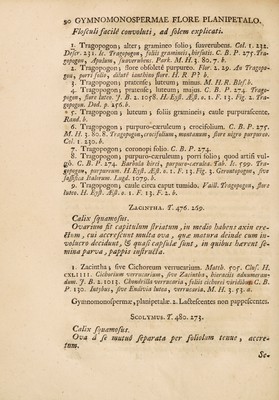 90 GYMNOMONOSPERMAE FLORE PLANIPETALO.
Flosculi facilè convoluti, ad solem explicati.
1. Tragopogon; alter; gramineo folio; suaverubens. Col. 1. 232.
Tragopogon, Apulum, suaverubens. Park. M. H. 3. 80. 7. b.
2. Tragopogon; flore obsoletè purpureo.
3. Tragopogon; pratense; luteum; minus. M. H. R. Blesf. b.
4. Tragopogon; pratense; luteum; majus. C. B. P. 274. Trago-
pogon; flore luteo. J. B. 2. 1058. H. Eyst. Æst. o. 1. F. 13. Fig. 2. Tra-
gopogon. Dod. p. 256. b.
5. Tragopogon; luteum; foliis gramineis; caule purpurascente.
Rand. b.
6. Tragopogon; purpuro-cæruleum; crocifolium. C. B. P. 275.
Col. 1. 230. b.
7. Tragopogon; coronopi folio. C. B. P. 274.
8. Tragopogon; purpuro-cæruleum; porri folio; quod artifi vul-
gò. C. B. P. 274. Barbula hirci, purpuro-cærulea. Tab. Ic. 599. Tra-
gopogon, purpureum. H. Eyst. Æst. o. 1. F. 13. Fig. 3. Gerontopogon, sive
saffifica Italorum. Lugd. 1079. b.
9. Tragopogon; caule circa caput tumido. Vaill. Tragopogon, flore
luteo. H. Eyst. Æst. o. 1. F. 13. F. 2. b.
ZACINTHA. T. 476. 269.
Calix squamosus.
Ovarium fit capitulum striatum, in medio habens axin cre-
brum, cui accrescunt multa ova, quæ matura deinde cum in-
volucro decidunt, & quasi capsulæ sunt, in quibus hærent se-
mina parva, pappis instructa.
1. Zacintha; sive Cichoreum verrucarium. Matth. 505. Clus. H.
CXLIIII. Cichorium verrucarium, sive Zacintha, hieraciis adnumeran-
dum. J. B. 2. 1013. Chondrilla verrucaria, foliis cichorei viridibus. C. B.
P. 130. Intybus, sive Endivia lutea, verrucaria. M. H. 3. 53. a.
Gymnomonospermæ, planipetalæ. 2. Lactescentes non pappescentes.
SCOLYMUS. T. 480. 273.
Calix squamosus.
Ova à se mutuò separata per foliolum tenue, accre-
tum.
Se-